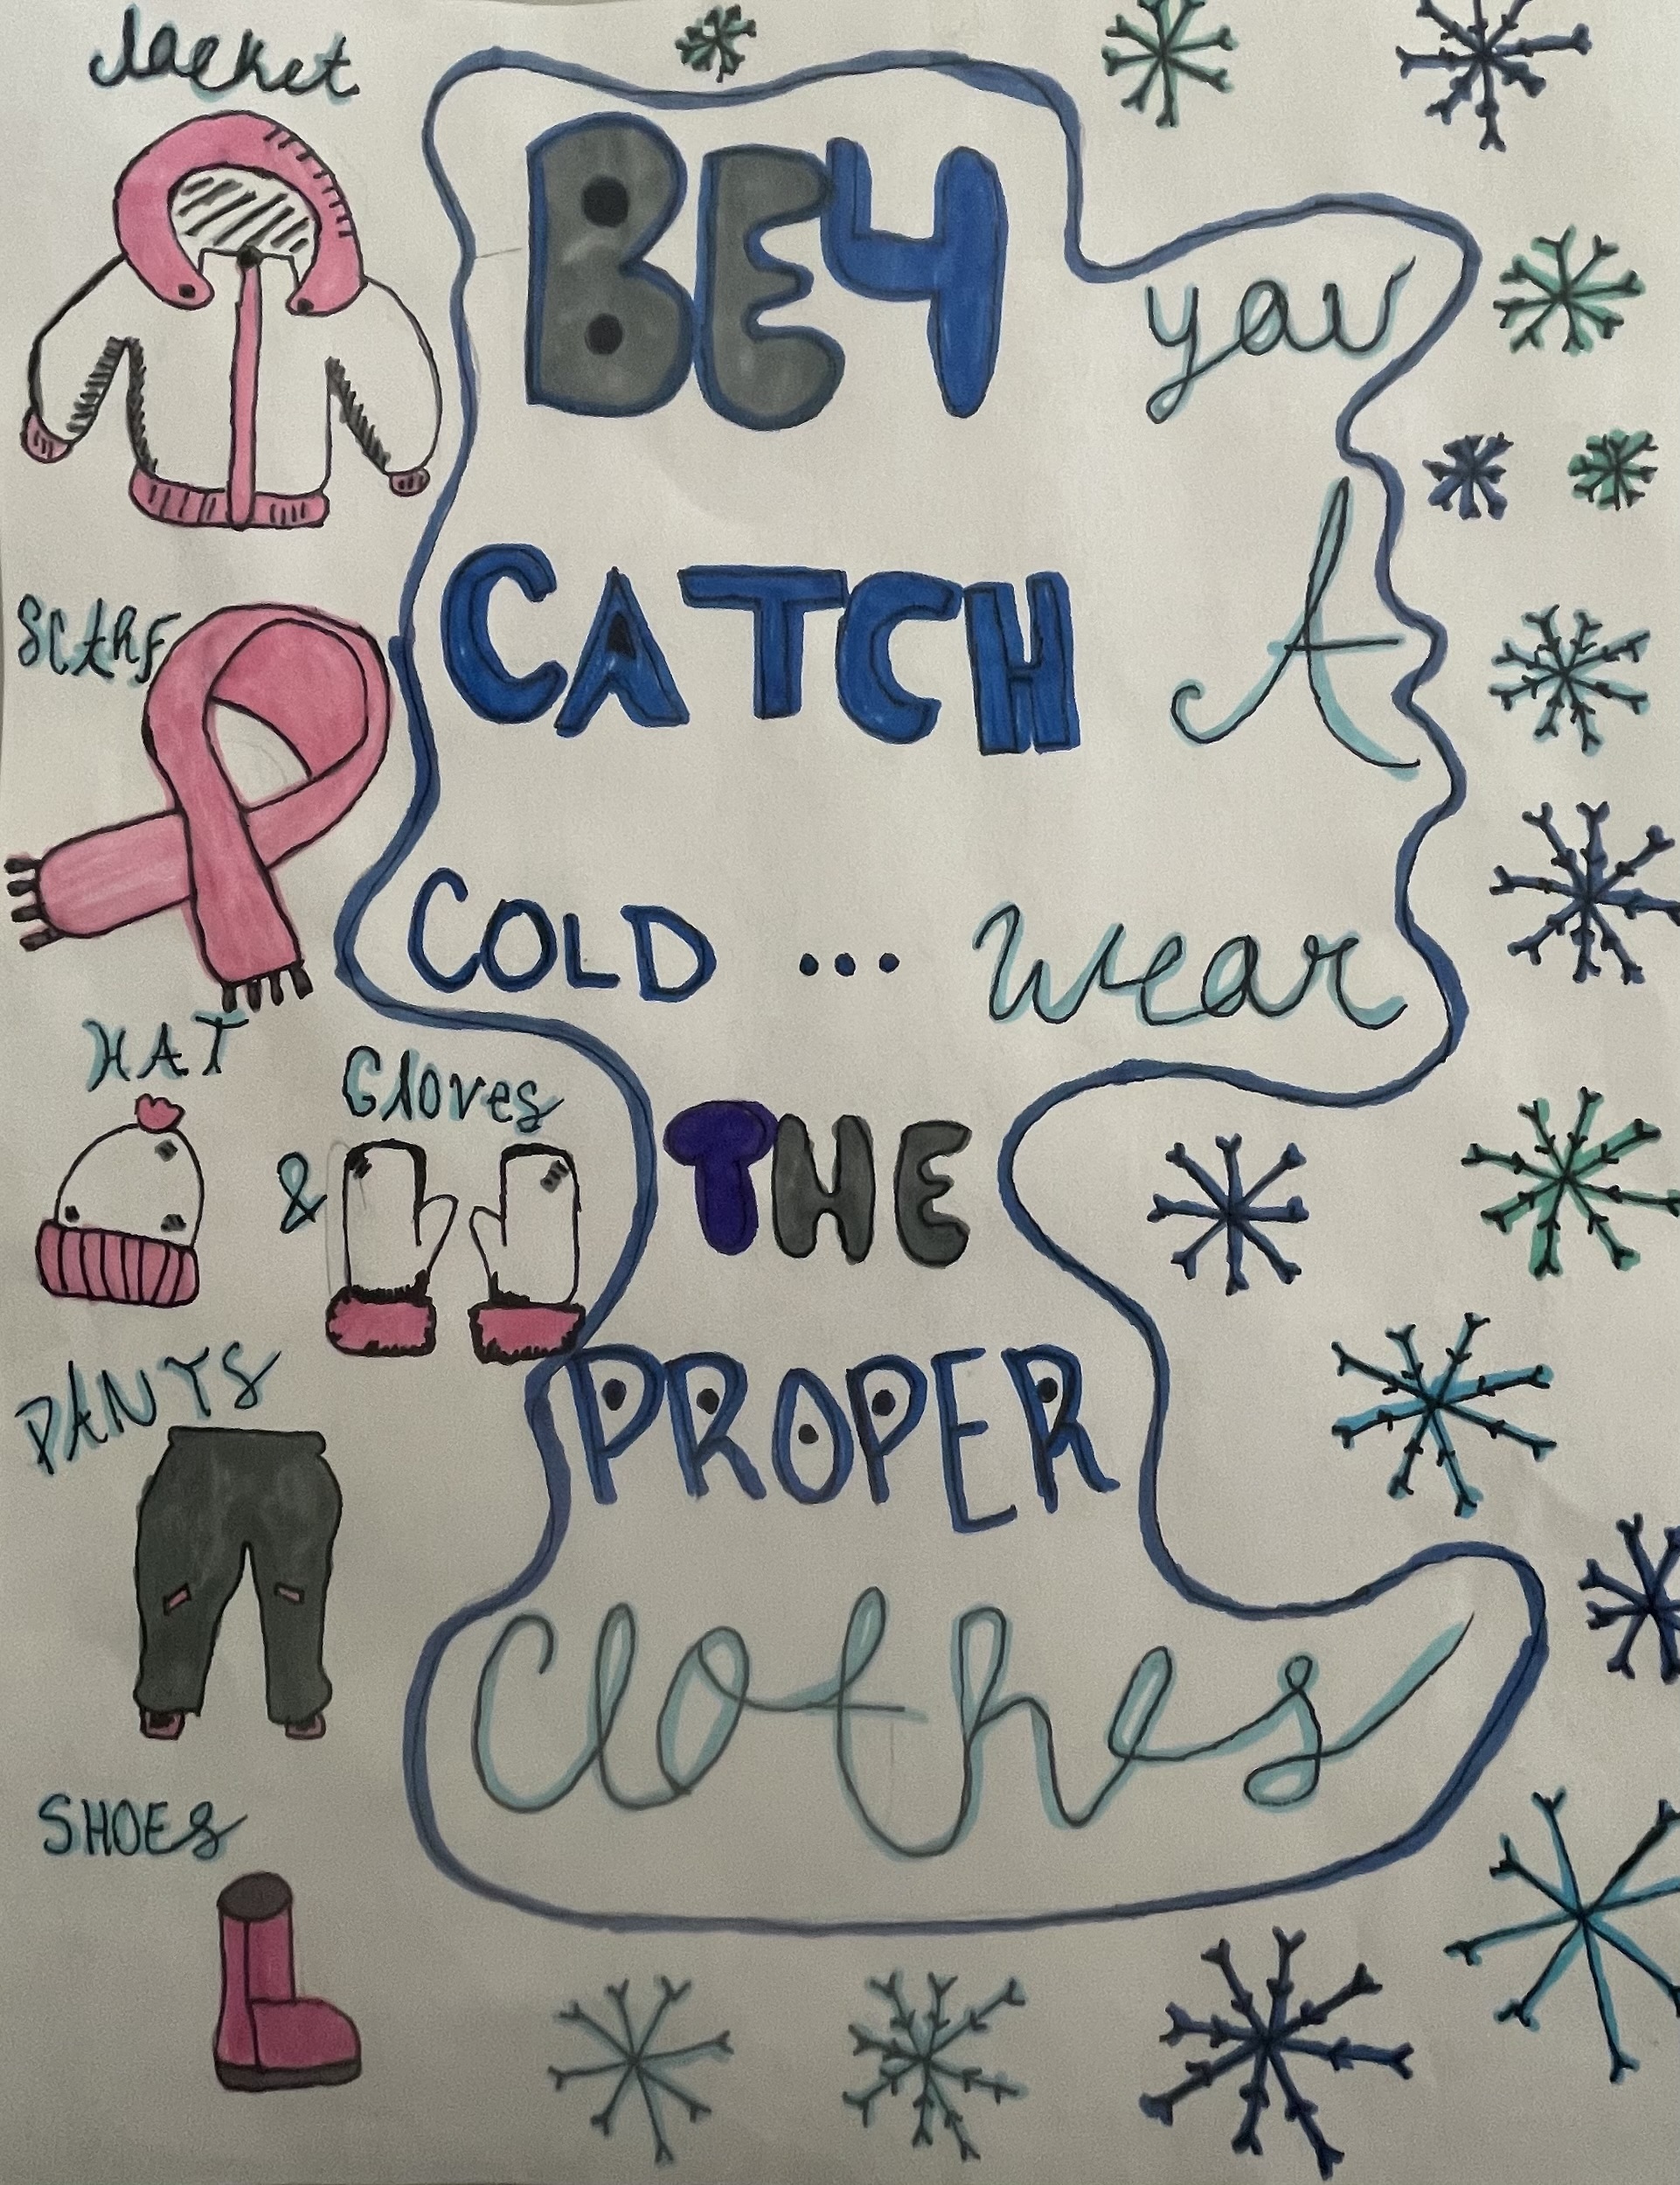 Jacket
BE4 you
CATCH A
SCARF
COLD ... wear
HAT
& Gloves
THE
PANTS
PROPER
Clothes
SHOES